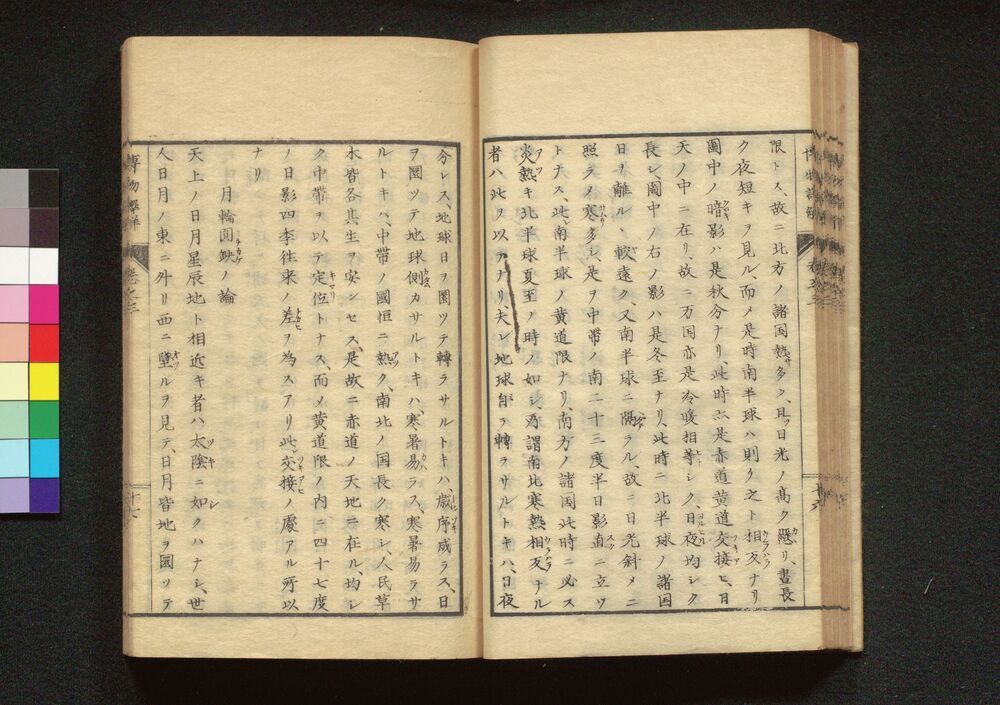 限トス、故ニ北方ノ諸国熱多ク、且ツ日光ノ髙ク懸リ、晝長
ク夜短キヲ見ル、而メ是時南半球ハ則ク之ト相反ナリ
圖中ノ暗影ハ是秋分ナリ此時亦是赤道黄道交接ヒ、日
天ノ中ニ在リ、故ニ万国亦是冷暖相等シク、日夜均シク
長シ、圖中ノ右ノ影ハ是冬至ナリ、此時ニ北半球ノ諸国
日ヲ離ル、較遠ク、又南半球ニ隔ラル、故ニ日光斜メニ
照ラメ寒多シ、是ヲ中帯ノ南二十三度半日影直ニ立ツ
トナス、此南半球ノ黄道限ナリ、南方ノ諸国此時ニ必ス
炎熱キ北半球夏至ノ時ノ如シ、謂南北寒熱相反ナル
者ハ此ヲ以テナリ、夫レ地球自ラ轉ラサルトキハ、日夜
分レス、地球日ヲ圜ツテ轉ラサルトキハ、歳序成ラス、日
ヲ圜ツテ地球側カサルトキハ、寒暑易ラス、寒暑易ラサ
ルトキハ、中帯ノ國恒ニ熱ク、南北ノ国長ク寒シ、人民草
木皆各其生ヲ安ンセス、是故ニ赤道ノ天地ニ在ル、均シ
ク中帯ヲ以テ定位トナス、而メ黄道限ノ内ニ四十七度
ノ日影四季往来ノ差ヲ為スアリ此交接ノ處アル所以
ナリ
月輪圓缺ノ論
天上ノ日月星辰地ト相近キ者ハ太陰ニ如クハナシ、世
人日月ノ東ニ外リ西ニ墜ルヲ見テ、日月皆地ヲ圜ツテ
博物
巻之三
十六